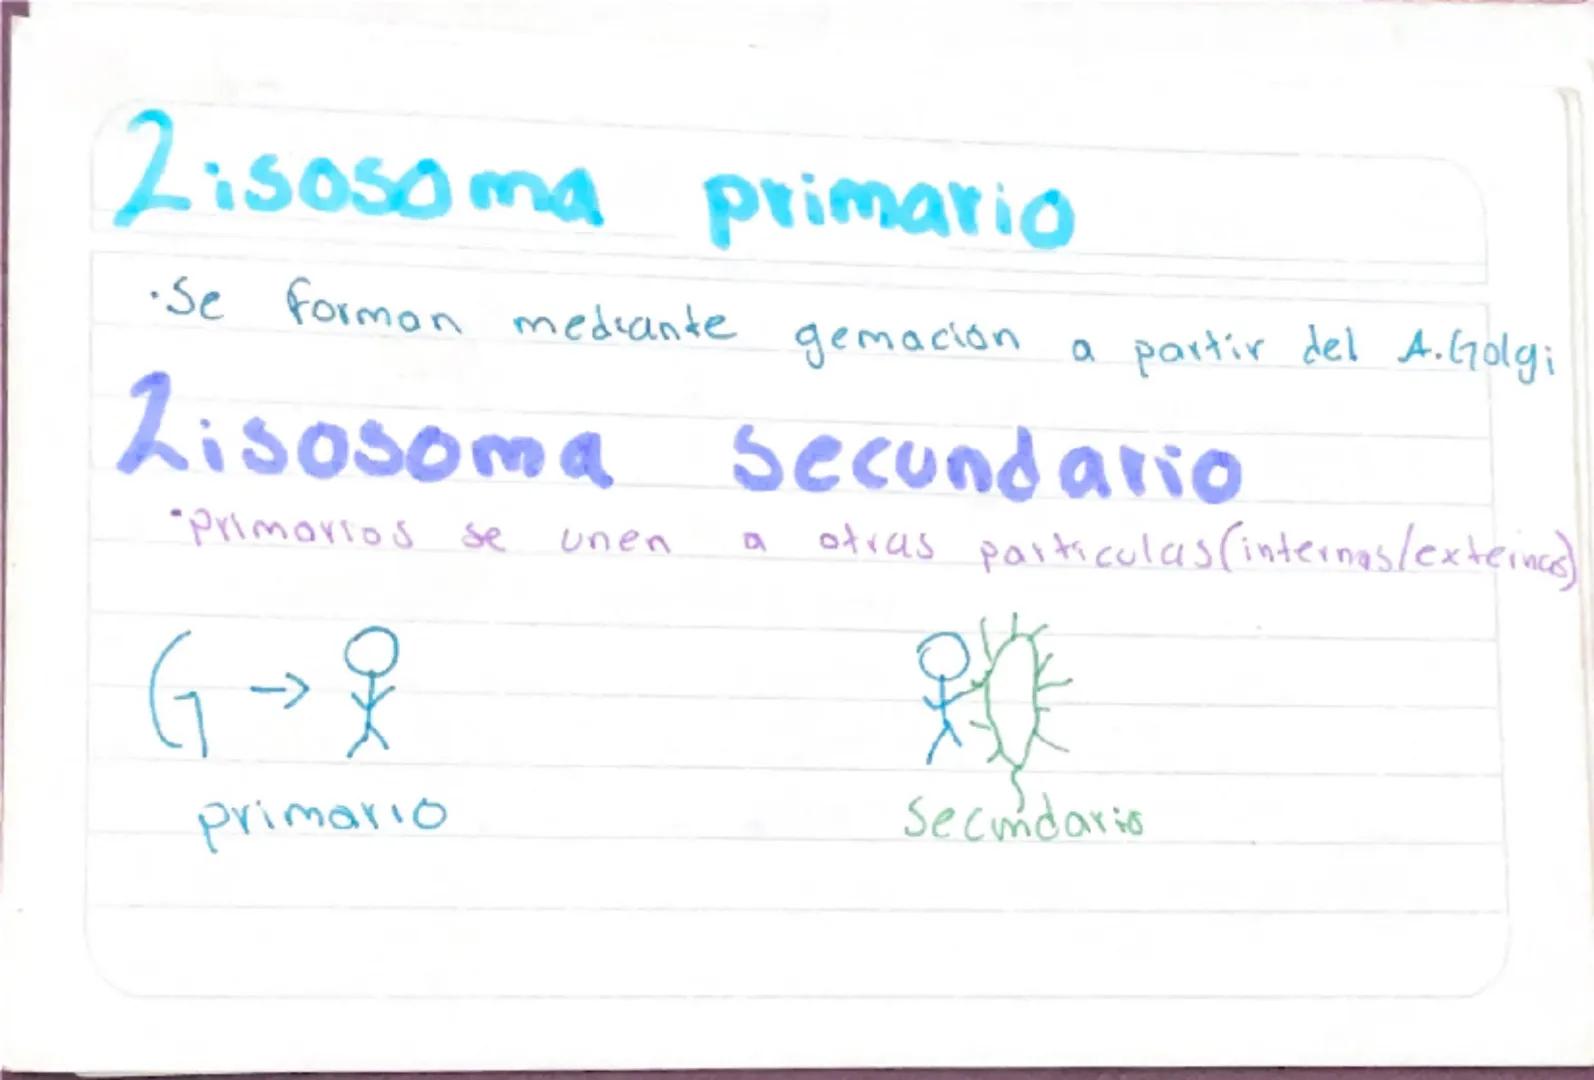 Lisosoma primario
·Se forman mediante gemación a partir del A.Golgi
Lisosoma secundario
·primarios se unen a otras partículas (internas/externas)
G →
primario
secundario